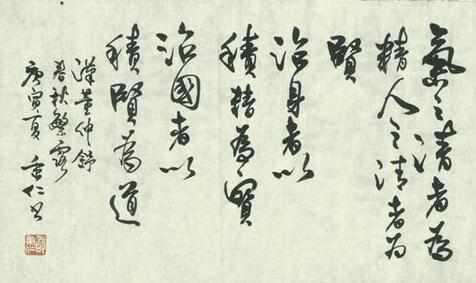 氣之清者為
精人之清者為
賢
治身者以
積精為寶
治國者以
積賢為道
漢董仲舒
春秋繁露
庚寅夏重仁书